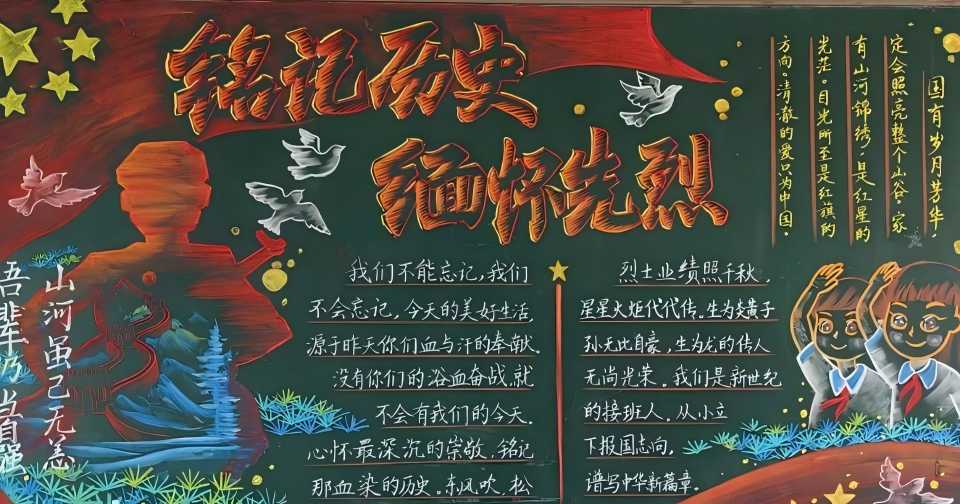 铭记历史
缅怀先烈
国有岁月芳华,
定会照亮整个山谷。家
有山河锦绣,是红星的
光茫。目光所至是红旗的
方向。清澈的爱只为中国。
山河虽已无恙
吾辈乃 自强
我们不能忘记,我们
不会忘记,今天的美好生活,
源于昨天你们血与汗的奉献.
没有你们的浴血奋战,就
不会有我们的今天.
心怀最深沉的崇敬,铭记
那血染的历史,东风吹,松
烈士业绩照千秋,
星星火炬代代传。生为炎黄子
孙无比自豪,生为龙的传人
无尚光荣。我们是新世纪
的接班人,从小立
下报国志向,
谱写中华新篇章.